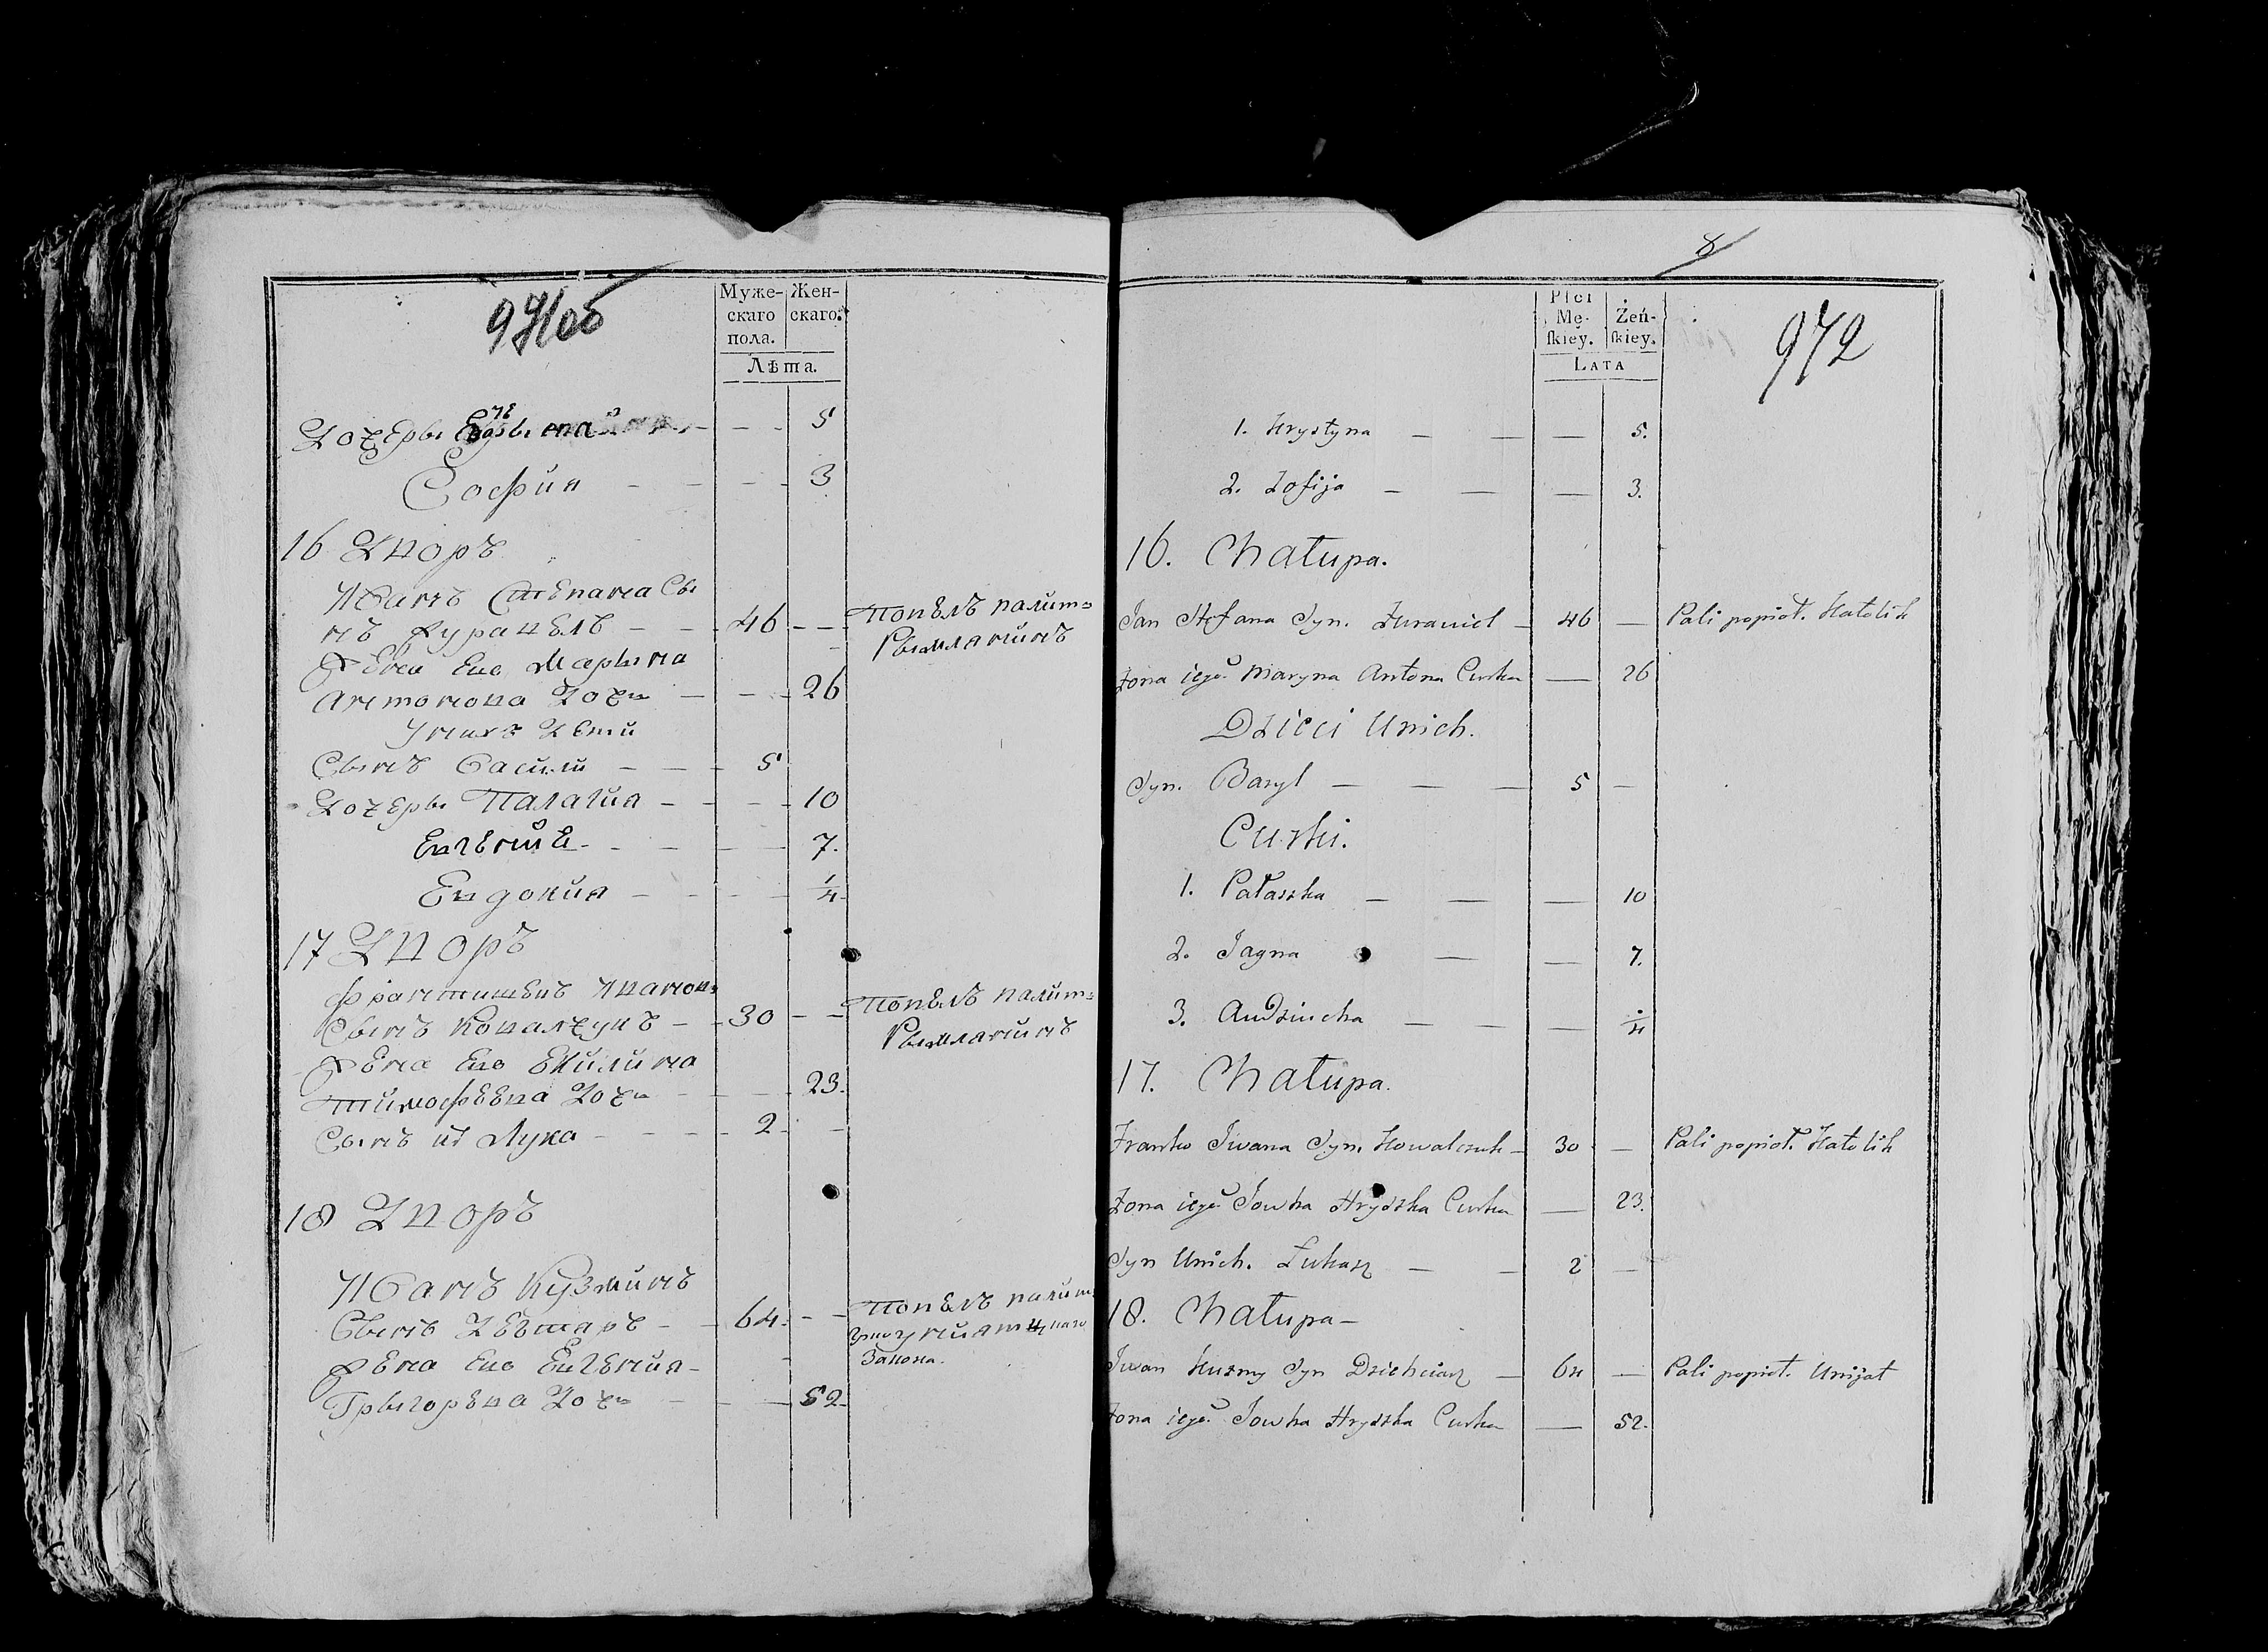 971об
Муже-
скаго
пола.
Жен-
скаго.
Лѣта.
Дочеры 5
София 3
16 Дворъ
Иванъ Степана Сы
нъ Журавелъ 46 Попелъ палит=
Рымлянинъ
Жена Его Марына
Антонова Дочь 26
У нихъ Дети
Сынъ Василий 5
Дочеры Палагия 10
Евгения 7.
Евдокия 1/4
17 Дворъ
Францишекъ Иванов=
Сынъ Ковалчукъ 30 Попелъ палит=
Рымлянинъ
Жена Его
Тимофеева Дочь 23.
Сынъ их Лука 2
18 Дворъ
Иванъ Кузминъ
Сынъ Дегтяръ 64. Попелъ палит
униятцкаго
Закона.
Жена Его Евгения
Грыгорева Дочь 52
8
972
Płci
Mę-
skiey.
Żeń-
skiey.
LATA
1. Krystyna — — — 5.
2. Zofija — — — 3.
16. Chałupa.
Jan Stefana Syn. Zurawiel — 46 — Pali popioł. Katolik
Żona iego Maryna Antona Curka — 26
Dzieci Unich.
Syn. Bazyl — — — 5 —
Curki.
1. Pałaszka — — — 10
2. Jagna — — 7.
3. Audziucha — — — 1/4
17. Chałupa.
Franko Iwana Syn. Kowalczuk — 30 — Pali popioł. Katolik
Żona iego Jowka Hryszka Curka — 23.
Syn Unich. Łukasz — — 2 —
18. Chałupa —
Iwan Kuzmy Syn Dziehciarz — 64 — Pali popioł. Unijat
Żona iego Jowka Hryszka Curka — 52.